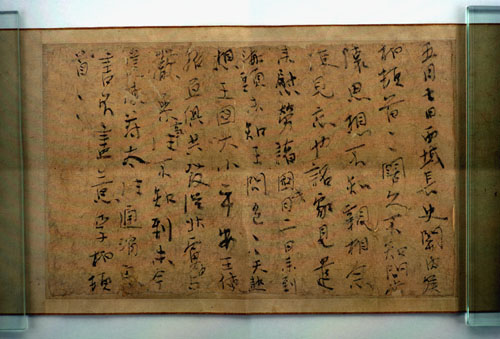 五月七日西域長史關內侯
柏頓首〻闊久不知問常
懷思想不知親相念
便見忘也詔家見遣
來慰勞諸國此月二日來到
海頭未知王問邑〻天熱
想王國大小平安王使
俱共發從北虜
嚴參事往不知到未今
遣使苻太往通消息
書不盡意李柏頓
首〻